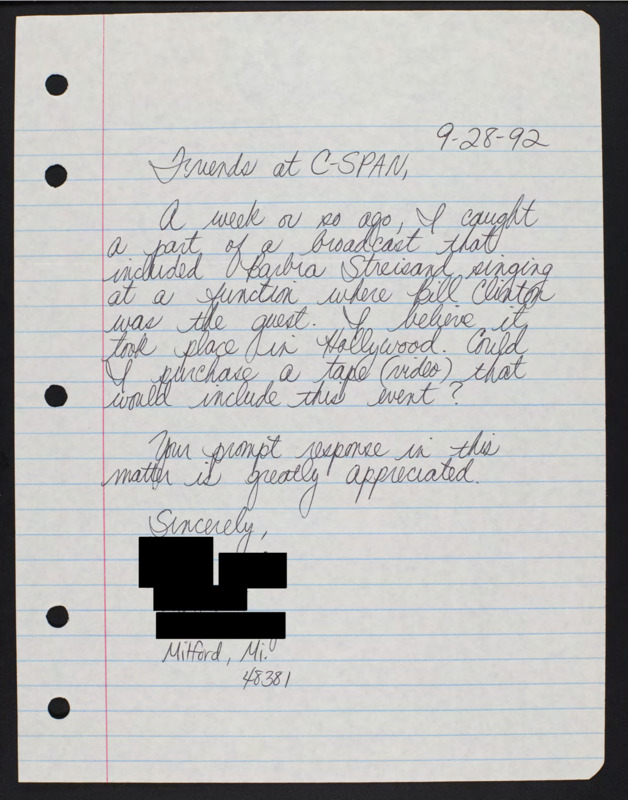 9-28-92
Friends at C-SPAN,
A week or so ago, I caught
a part of a broadcast that
included Barbra Streisand singing
at a function where Bill Clinton
was the guest. I believe it
took place in Hollywood. Could
I purchase a tape (video) that
would include this event?
Your prompt response in this
matter is greatly appreciated.
Sincerely,
Milford, Mi.
48381